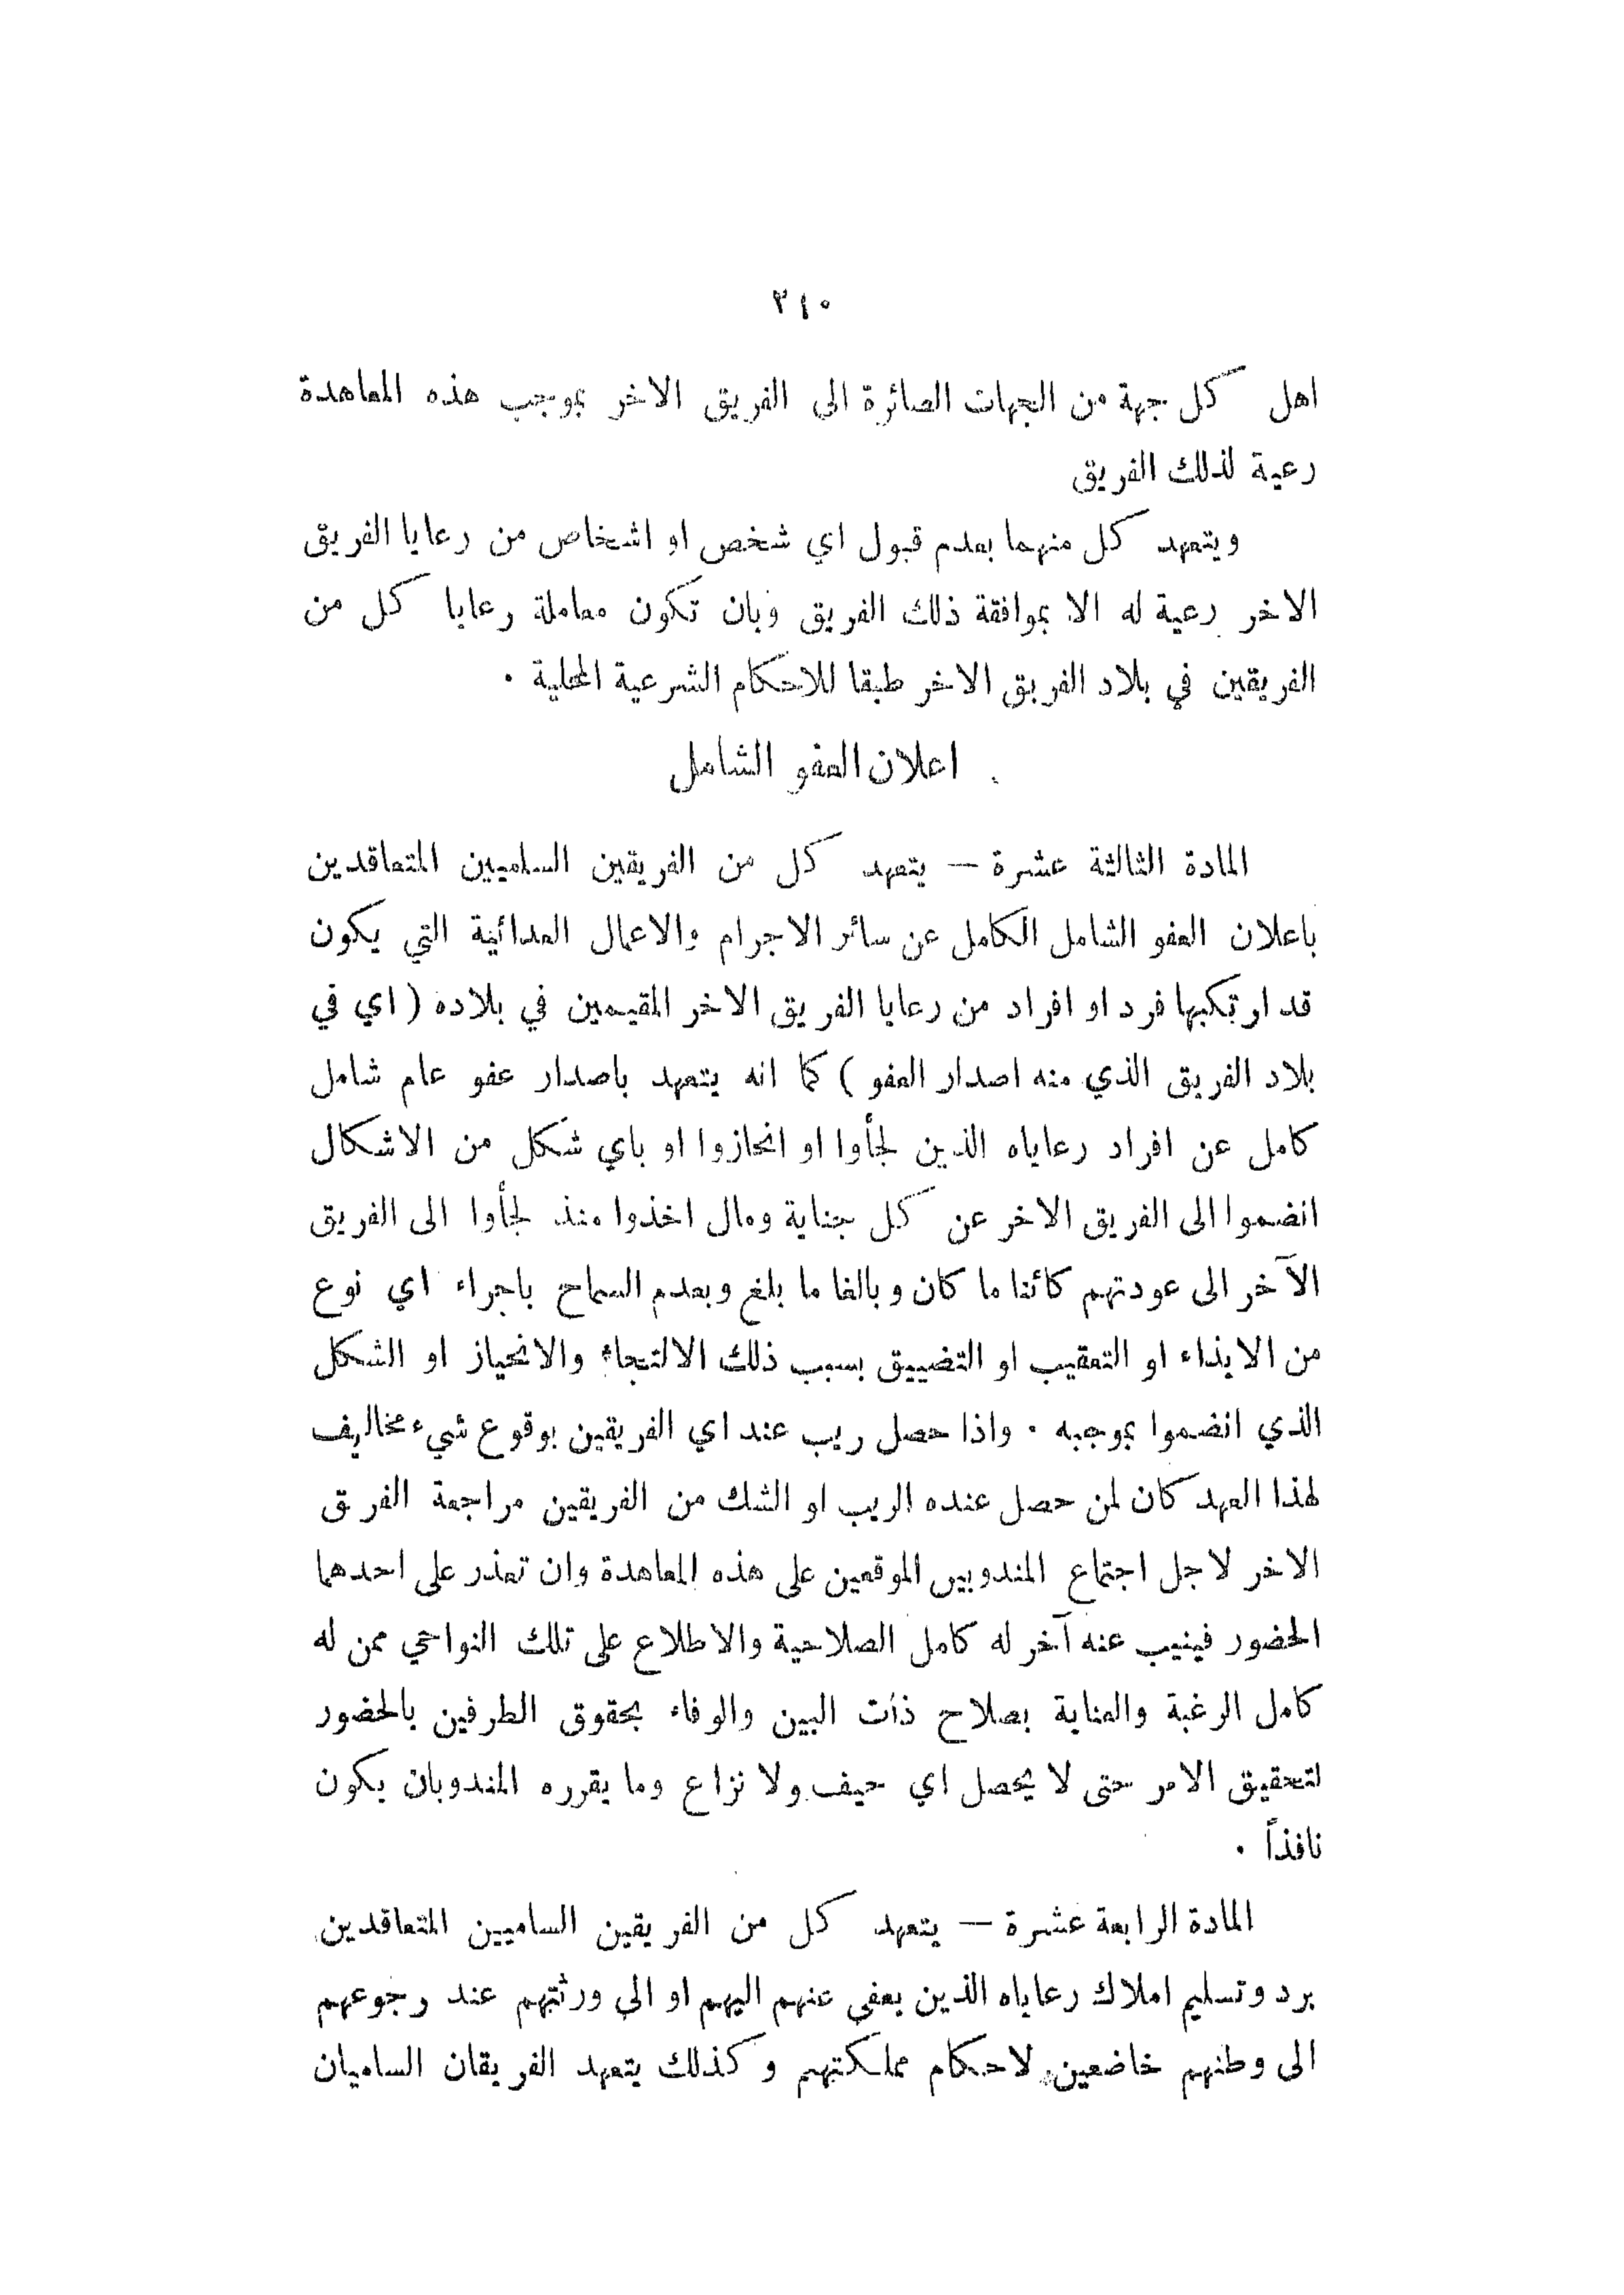 ٢١٠
اهل كل جهة من الجهات الصائرة الى الفريق الاخر بموجب هذه المعاهدة
رعية لذلك الفريق
ويتعهد كل منهما بعدم قبول اي شخص او اشخاص من رعايا الفريق
الاخر رعية له الا بموافقة ذلك الفريق وبان تكون معاملة رعايا كل من
الفريقين في بلاد الفريق الاخر طبقا للاحكام الشرعية المحلية ٠
اعلان العفو الشامل
المادة الثالثة عشرة — يتعهد كل من الفريقين الساميين المتعاقدين
باعلان العفو الشامل الكامل عن سائر الاجرام والاعمال العدائية التي يكون
قد ارتكبها فرد او افراد من رعايا الفريق الاخر المقيمين في بلاده ( اي في
بلاد الفريق الذي منه اصدار العفو ) كما انه يتعهد باصدار عفو عام شامل
كامل عن افراد رعاياه الذين لجأوا او انحازوا او باي شكل من الاشكال
انضموا الى الفريق الاخر عن كل جناية ومال اخذوا منذ لجأوا الى الفريق
الآخر الى عودتهم كائنا ما كان وبالغا ما بلغ وبعدم السماح باجراء اي نوع
من الايذاء او التعقيب او التضييق بسبب ذلك الالتجاء والانحياز او الشكل
الذي انضموا بموجبه ٠ واذا حصل ريب عند اي الفريقين بوقوع شيء مخاليف
لهذا العهد كان لمن حصل عنده الريب او الشك من الفريقين مراجعة الفر ق
الاخر لاجل اجتماع المندوبين الموقعين على هذه المعاهدة وان تعذر على احدهما
الحضور فينيب عنه آخر له كامل الصلاحية والاطلاع على تلك النواحي ممن له
كامل الرغبة والعناية بصلاح ذات البين والوفاء بحقوق الطرفين بالحضور
لتحقيق الامر حتى لا يحصل اي حيف ولا نزاع وما يقرره المندوبان يكون
نافذاً ٠
المادة الرابعة عشرة — يتعهد كل من الفريقين الساميين المتعاقدين
برد وتسليم املاك رعاياه الذين يعفى عنهم اليهم او الى ورثتهم عند رجوعهم
الى وطنهم خاضعين لاحكام مملكتهم وكذلك يتعهد الفريقان الساميان